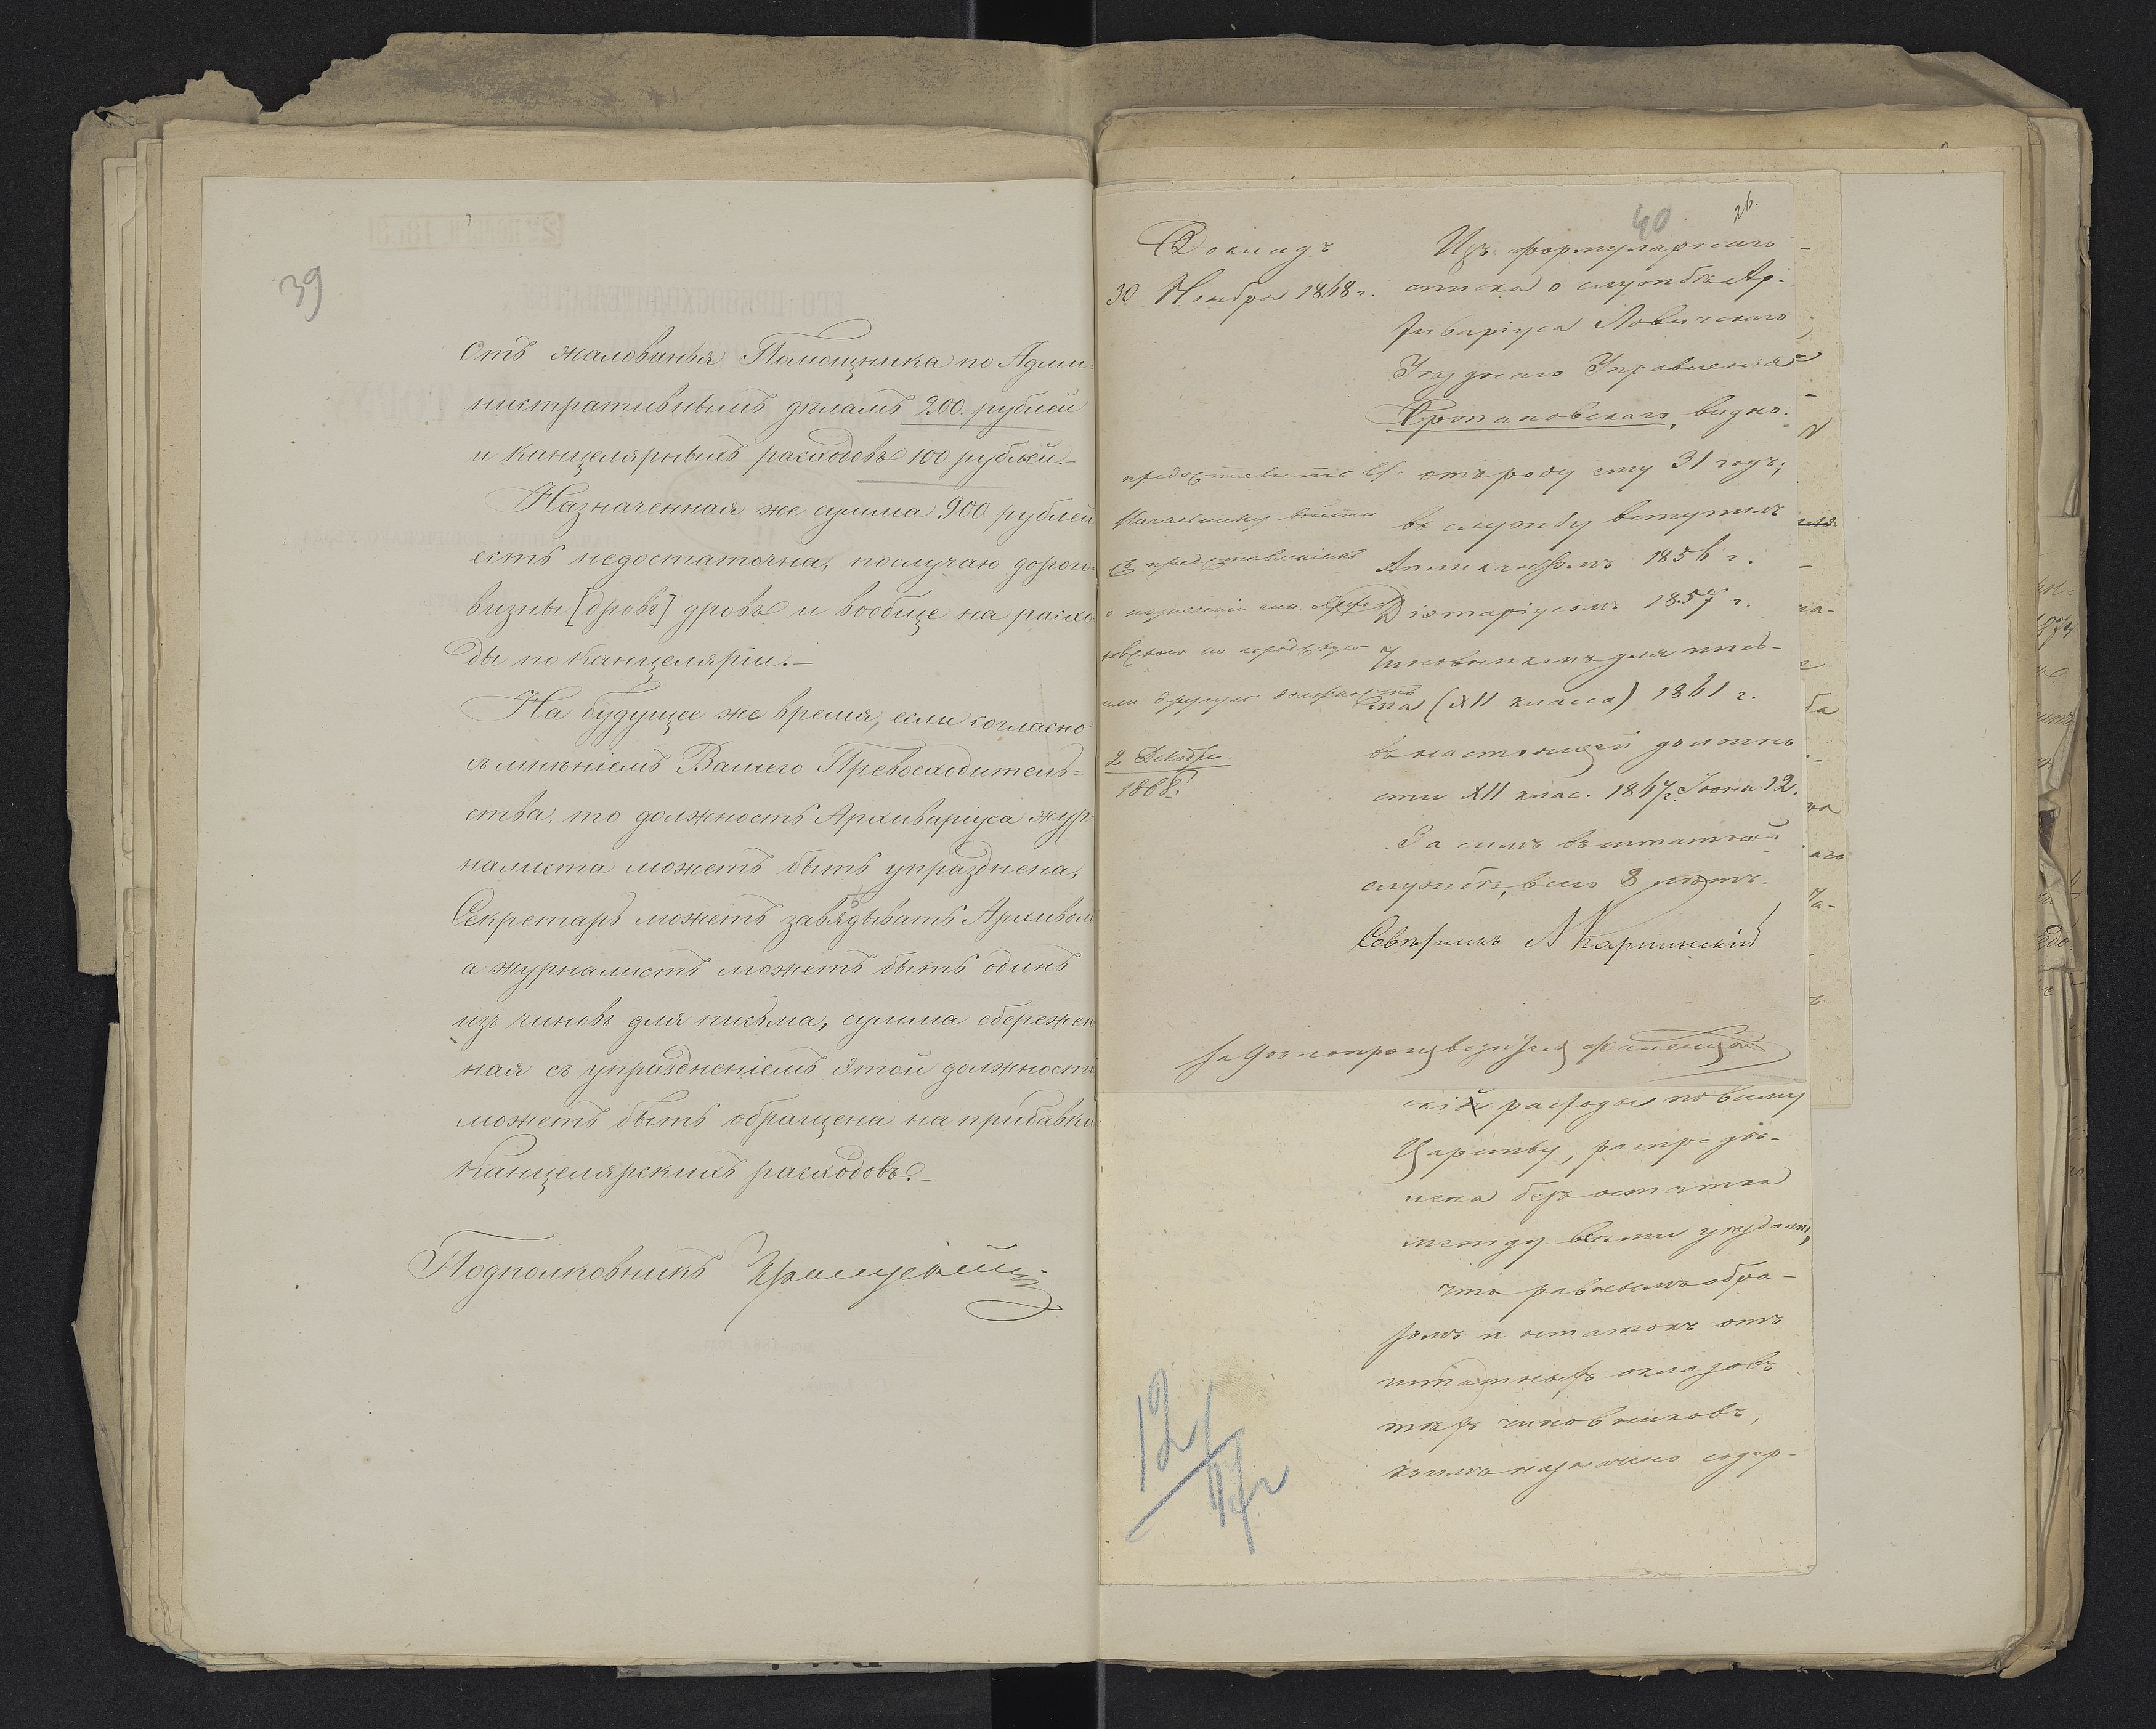 39
Отъ жалованья Помощника по Адми-
нистративнымъ дѣламъ 200 рублей
и канцелярныхъ расходовъ 100 рублей.—
Назначенная же сумма 900 рублей
есть недостаточна, послучаю дорого-
визны [дровъ] дровъ и вообще на расхо
ды по канцеляріи.—
На будущее же время, если согласно
съ мнѣніемъ Вашего Превосходитель=
ства, то должность Архиваріуса жур
налиста можетъ быть упразднена,
Секретарь можетъ завѣдывать Архивом
а журналистъ можетъ быть одинъ
изъ чиновъ для письма, сумма сбережен
ная съ упраздненіемъ этой должност
можетъ быть обращена на прибавки
Канцелярскихъ расходовъ.—
Подполковникъ
40 26.
Докладъ
30 Ноября 1868 г.
Изъ формулярнаго
списка о службѣ Ар-
хиваріуса Ловичскаго
Уѣзднаго Управленія
видно:
отъ роду ему 31 годъ;
въ службу вступилъ
Аппликантомъ 1856 г.
Діэтаріусомъ 1857 г.
Чиновникомъ для пись-
ма (XII класса) 1861 г.
въ настоящей должно
сти XII клас. 1867 г. Іюня 12.
За симъ въ штатной
службѣ, всего 8 лѣтъ.
Совѣтникъ
предоставить У.
Начальнику войти
съ представленіемъ
о назначеніи
на городскую
или другую должность
2 Декабря
1868.
За Дѣлопроизводителя
скій расходы по всему
Царству, распредѣ-
лена безъ остатка
между всѣми уѣздами,
что равнымъ обра-
зомъ и остатокъ отъ
штатныхъ окладовъ
тѣхъ чиновниковъ,
коимъ назначено содер-
12/